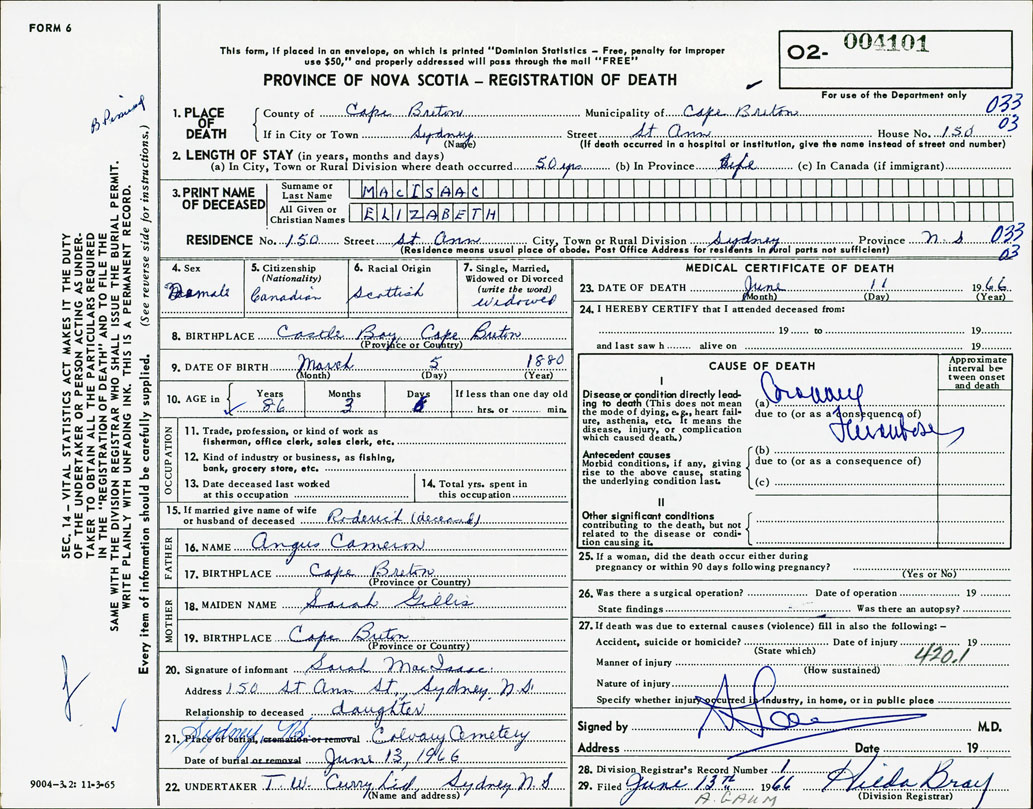 FORM 6
This form, if placed in an envelope, on which is printed "Dominion Statistics – Free, penalty for improper
use $50," and properly addressed will pass through the mail "FREE"
PROVINCE OF NOVA SCOTIA – REGISTRATION OF DEATH
O2- 004101
For use of the Department only
033
03
1. PLACE OF DEATH County of Cape Breton Municipality of Cape Breton
If in City or Town Sydney Street St Ann House No. 150
(Name) (If death occurred in a hospital or institution, give the name instead of street and number)
2. LENGTH OF STAY (in years, months and days)
(a) In City, Town or Rural Division where death occurred 50 yrs (b) In Province life (c) In Canada (if immigrant)
3. PRINT NAME OF DECEASED Surname or Last Name MACISAAC
All Given or Christian Names ELIZABETH
RESIDENCE No. 150 Street St. Ann City, Town or Rural Division Sydney Province N.S 033
03
(Residence means usual place of abode. Post Office Address for residents in rural parts not sufficient)
4. Sex Female
5. Citizenship (Nationality) Canadian
6. Racial Origin Scottish
7. Single, Married, Widowed or Divorced (write the word) widowed
8. BIRTHPLACE Castle Bay Cape Breton
(Province or Country)
9. DATE OF BIRTH March 5 1880
(Month) (Day) (Year)
10. AGE in Years 86 Months 3 Days 6 If less than one day old hrs. or min.
OCCUPATION
11. Trade, profession, or kind of work as
fisherman, office clerk, sales clerk, etc.
12. Kind of industry or business, as fishing,
bank, grocery store, etc.
13. Date deceased last worked
at this occupation
14. Total yrs. spent in
this occupation
15. If married give name of wife
or husband of deceased Roderick (deceased)
FATHER
16. NAME Angus Cameron
17. BIRTHPLACE Cape Breton
(Province or Country)
MOTHER
18. MAIDEN NAME Sarah Gillis
19. BIRTHPLACE Cape Breton
(Province or Country)
20. Signature of informant Sarah MacIsaac
Address 150 St Ann St., Sydney N.S.
Relationship to deceased daughter
21. Place of burial, cremation or removal Sydney NS Calvary Cemetery
Date of burial or removal June 13, 1966
22. UNDERTAKER T. W. Curry Ltd Sydney N S
(Name and address)
MEDICAL CERTIFICATE OF DEATH
23. DATE OF DEATH June 11 1966
(Month) (Day) (Year)
24. I HEREBY CERTIFY that I attended deceased from:
19 to 19
and last saw h alive on 19
CAUSE OF DEATH
Approximate interval between onset and death
I
Disease or condition directly leading to death (This does not mean the mode of dying, e.g., heart failure, asthenia, etc. It means the disease, injury, or complication which caused death.)
(a) Coronary
due to (or as a consequence of)
Thrombosis
Antecedent causes
Morbid conditions, if any, giving rise to the above cause, stating the underlying condition last.
(b)
due to (or as a consequence of)
(c)
II
Other significant conditions
contributing to the death, but not related to the disease or condition causing it.
25. If a woman, did the death occur either during
pregnancy or within 90 days following pregnancy?
(Yes or No)
26. Was there a surgical operation? Date of operation 19
State findings Was there an autopsy?
27. If death was due to external causes (violence) fill in also the following: –
Accident, suicide or homicide? Date of injury 19
(State which) 420.1
Manner of injury
(How sustained)
Nature of injury
Specify whether injury occurred in industry, in home, or in public place
Signed by M.D.
Address Date 19
28. Division Registrar's Record Number 1
29. Filed June 13th 1966 Hilda Bray
(Division Registrar)
SEC. 14 – VITAL STATISTICS ACT MAKES IT THE DUTY
OF THE UNDERTAKER OR PERSON ACTING AS UNDER-
TAKER TO OBTAIN ALL THE PARTICULARS REQUIRED
IN THE "REGISTRATION OF DEATH" AND TO FILE THE
SAME WITH THE DIVISION REGISTRAR WHO SHALL ISSUE THE BURIAL PERMIT.
WRITE PLAINLY WITH UNFADING INK. THIS IS A PERMANENT RECORD.
Every item of information should be carefully supplied. (See reverse side for instructions.)
9004–3.2: 11-3-65